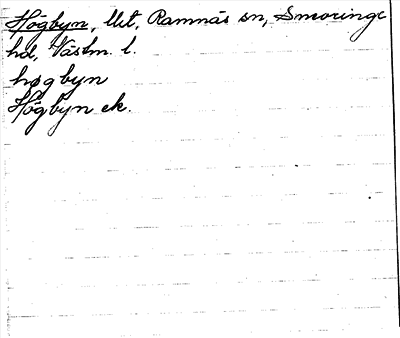 Högbyn, lht, Ramnäs sn, Snevringe
hd, Västm. l.
høgbyn
Högbyn ek.